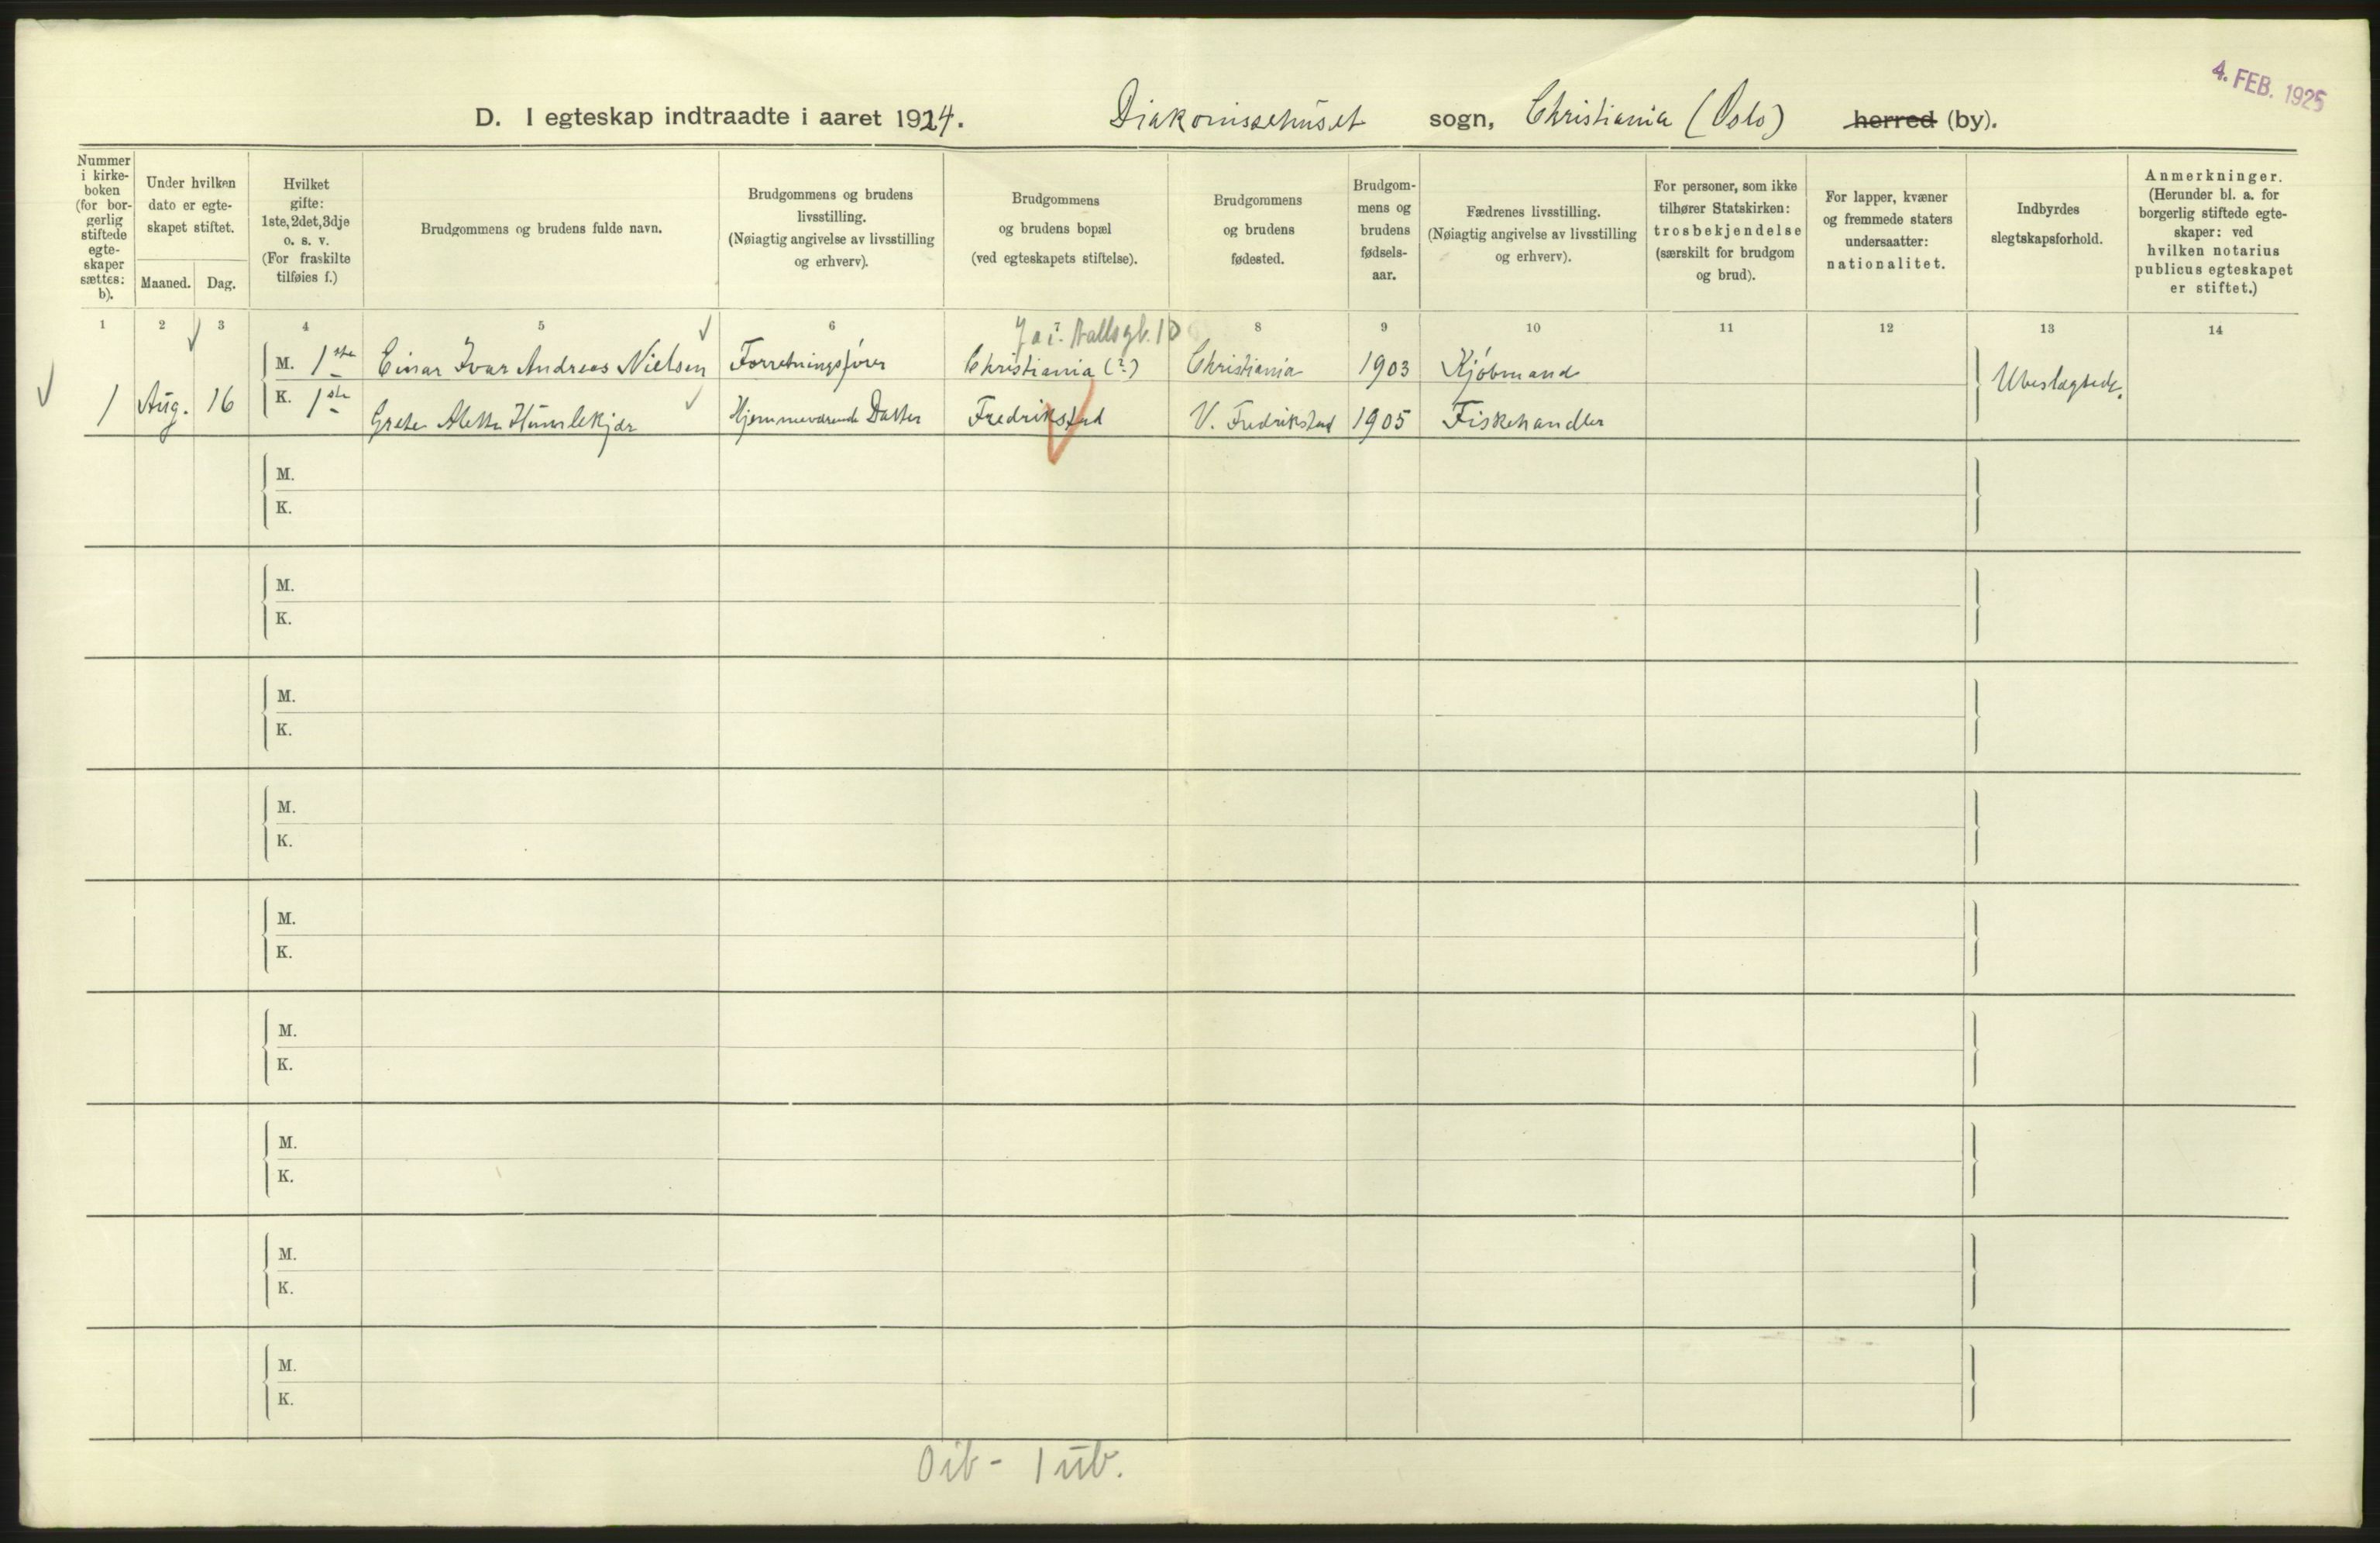 4. FEB. 1925
D. I egteskap indtraadte i aaret 1924. Diakonissehuset sogn, Christiania (Oslo) herred (by).
Nummer i kirke- boken (for bor- gerlig stiftede egte- skaper sættes: b).
Under hvilken dato er egte- skapet stiftet.
Maaned. Dag.
Hvilket gifte: 1ste, 2det, 3dje o. s. v. (For fraskilte tilføies f.)
Brudgommens og brudens fulde navn.
Brudgommens og brudens livsstilling. (Nøiagtig angivelse av livsstilling og erhverv).
Brudgommens og brudens bopæl (ved egteskapets stiftelse).
Brudgommens og brudens fødested.
Brudgom- mens og brudens fødsels- aar.
Fædrenes livsstilling. (Nøiagtig angivelse av livsstilling og erhverv).
For personer, som ikke tilhører Statskirken: trosbekjendelse (særskilt for brudgom og brud).
For lapper, kvæner og fremmede staters undersaatter: nationalitet.
Indbyrdes slegtskapsforhold.
Anmerkninger. (Herunder bl. a. for borgerlig stiftede egte- skaper: ved hvilken notarius publicus egteskapet er stiftet.)
1 2 3 4 5 6 7 8 9 10 11 12 13 14
M. 1ste Einar Ivar Andreas Nielsen Forretningsfører Christiania (?) Christiania 1903 Kjøbmand Ubeslægtede.
1 Aug. 16 K. 1ste Grete Aletta Humlekjær Hjemmeværende Datter Fredrikstad V. Fredrikstad 1905 Fiskehandler
M.
K.
M.
K.
M.
K.
M.
K.
M.
K.
M.
K.
M.
K.
M.
K.
M.
K.
0 ib - 1 ub.